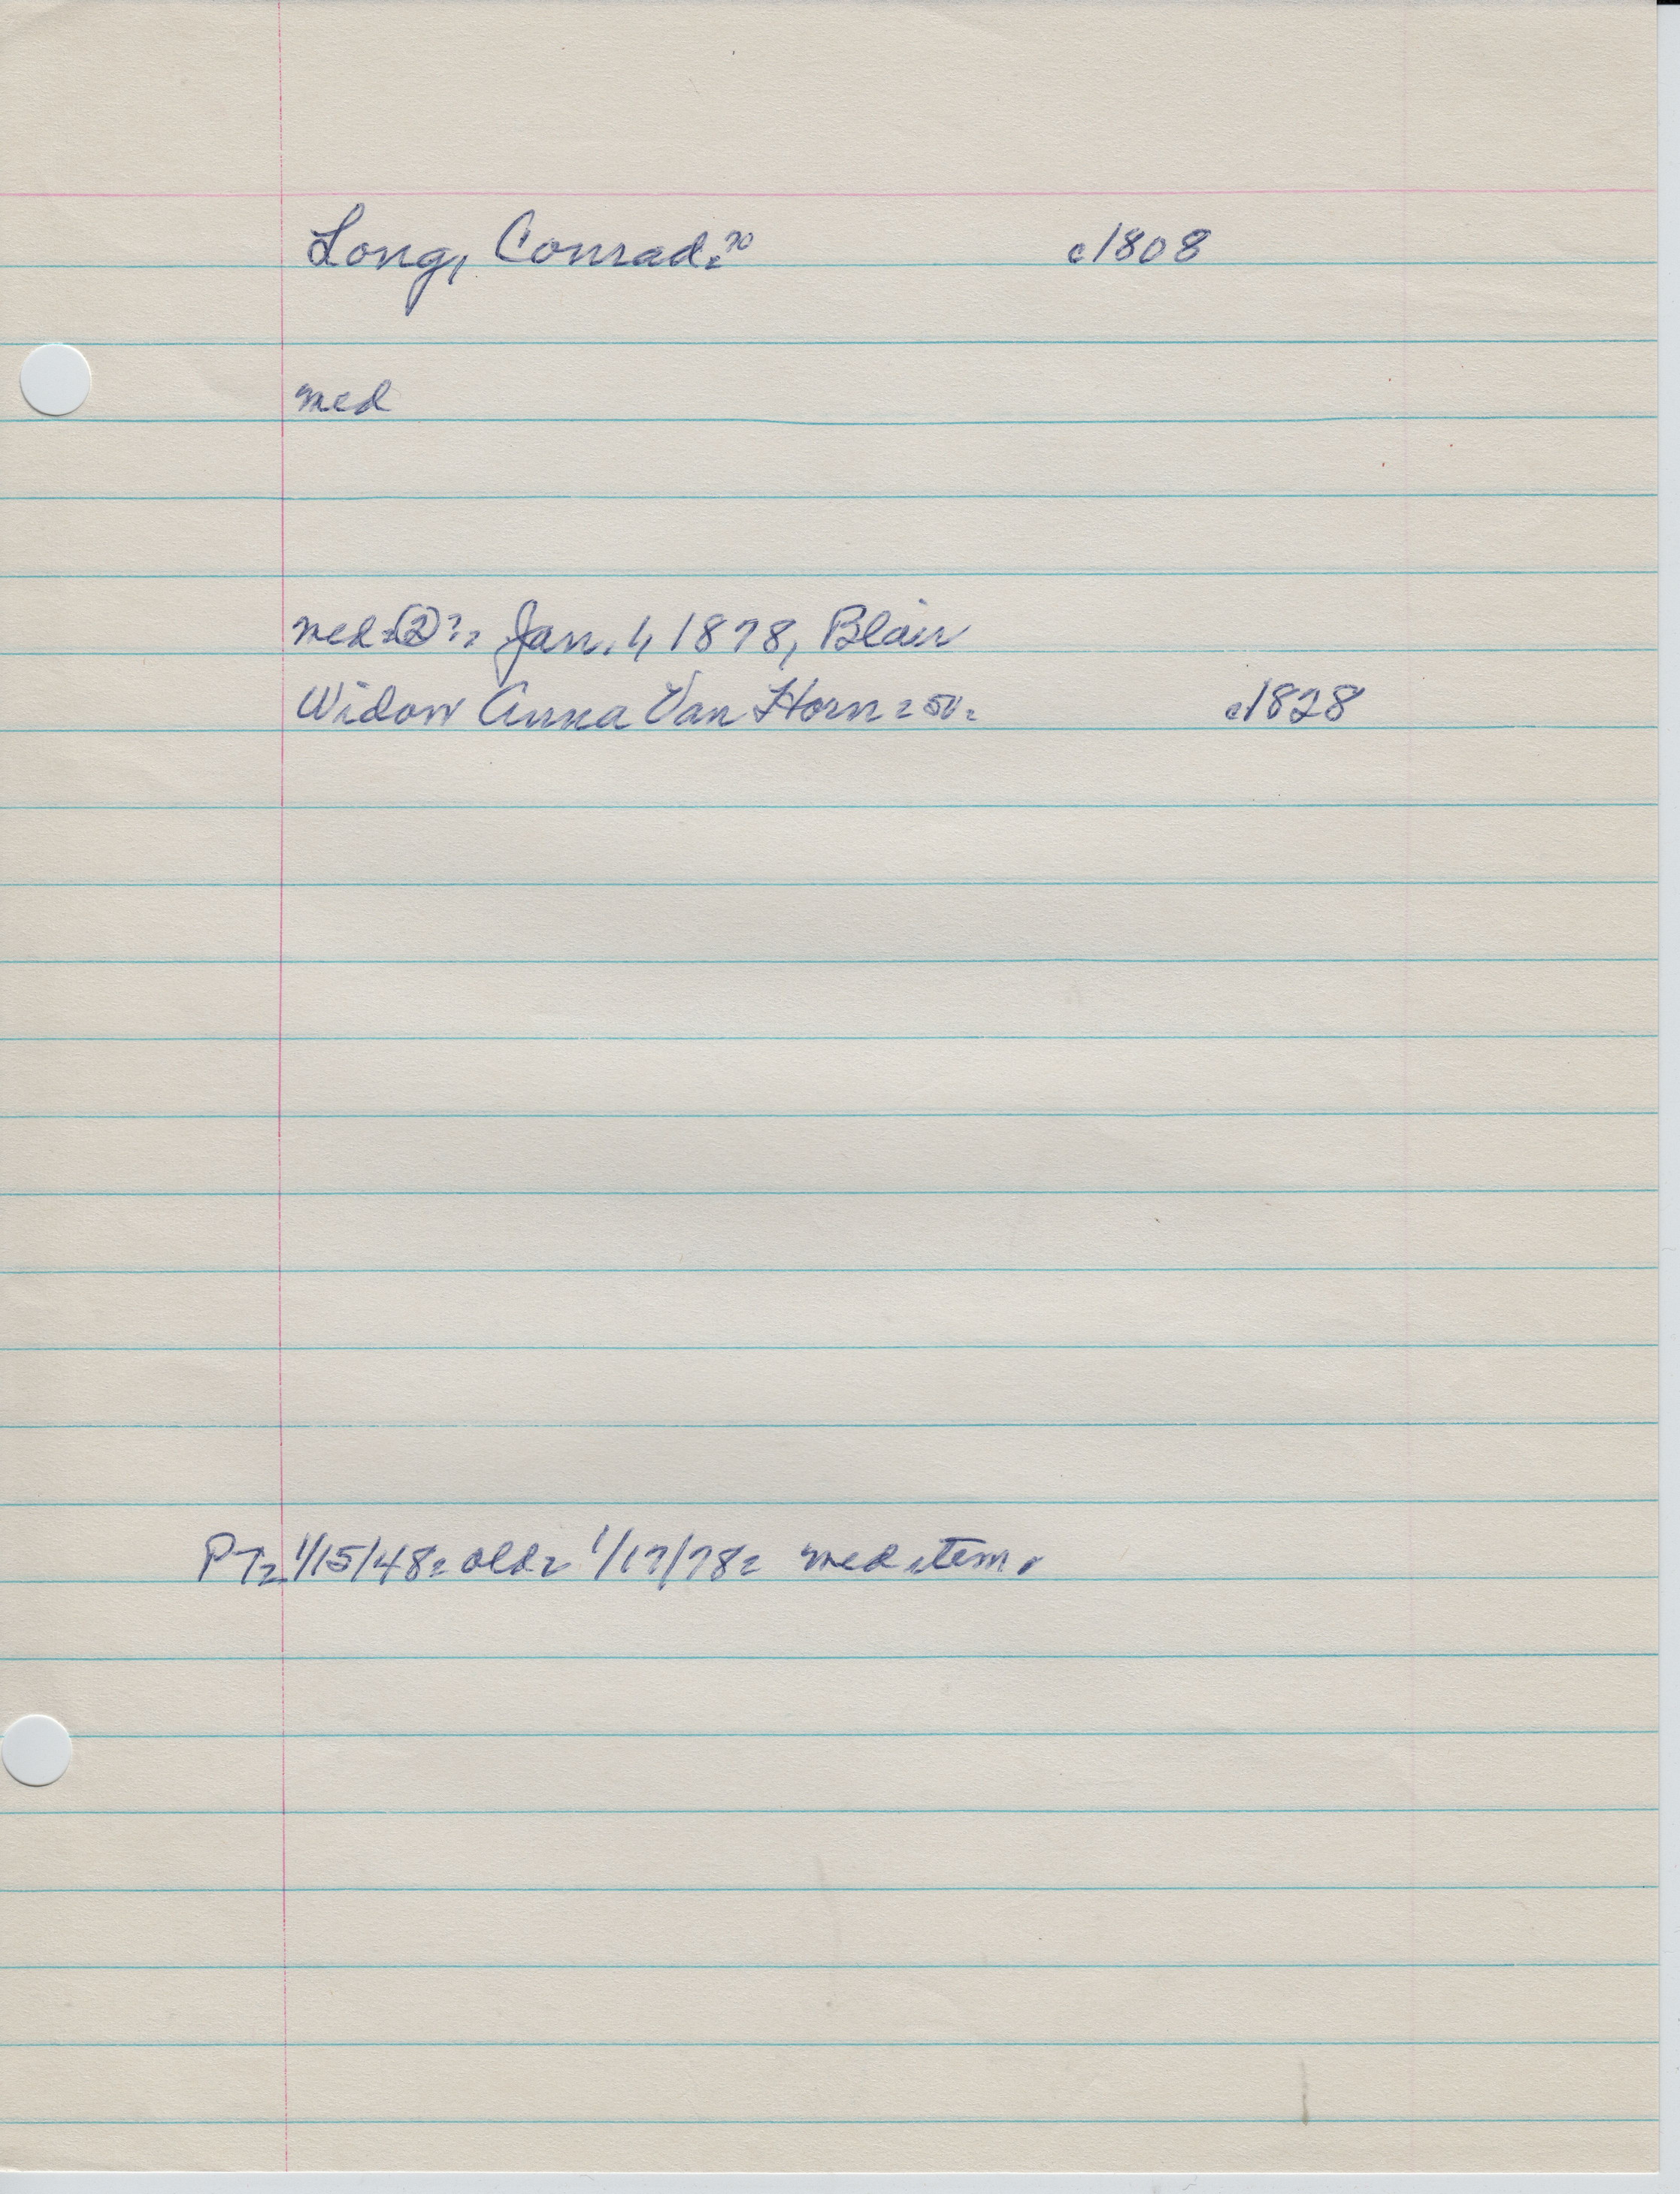 Long, Conrad. 70 c1808
med
med (2)?, Jan. 1, 1878, Blair
Widow Anna Van Horn = 50 = c1828
PT = 1/15/48 = old = 1/17/78 = med item.